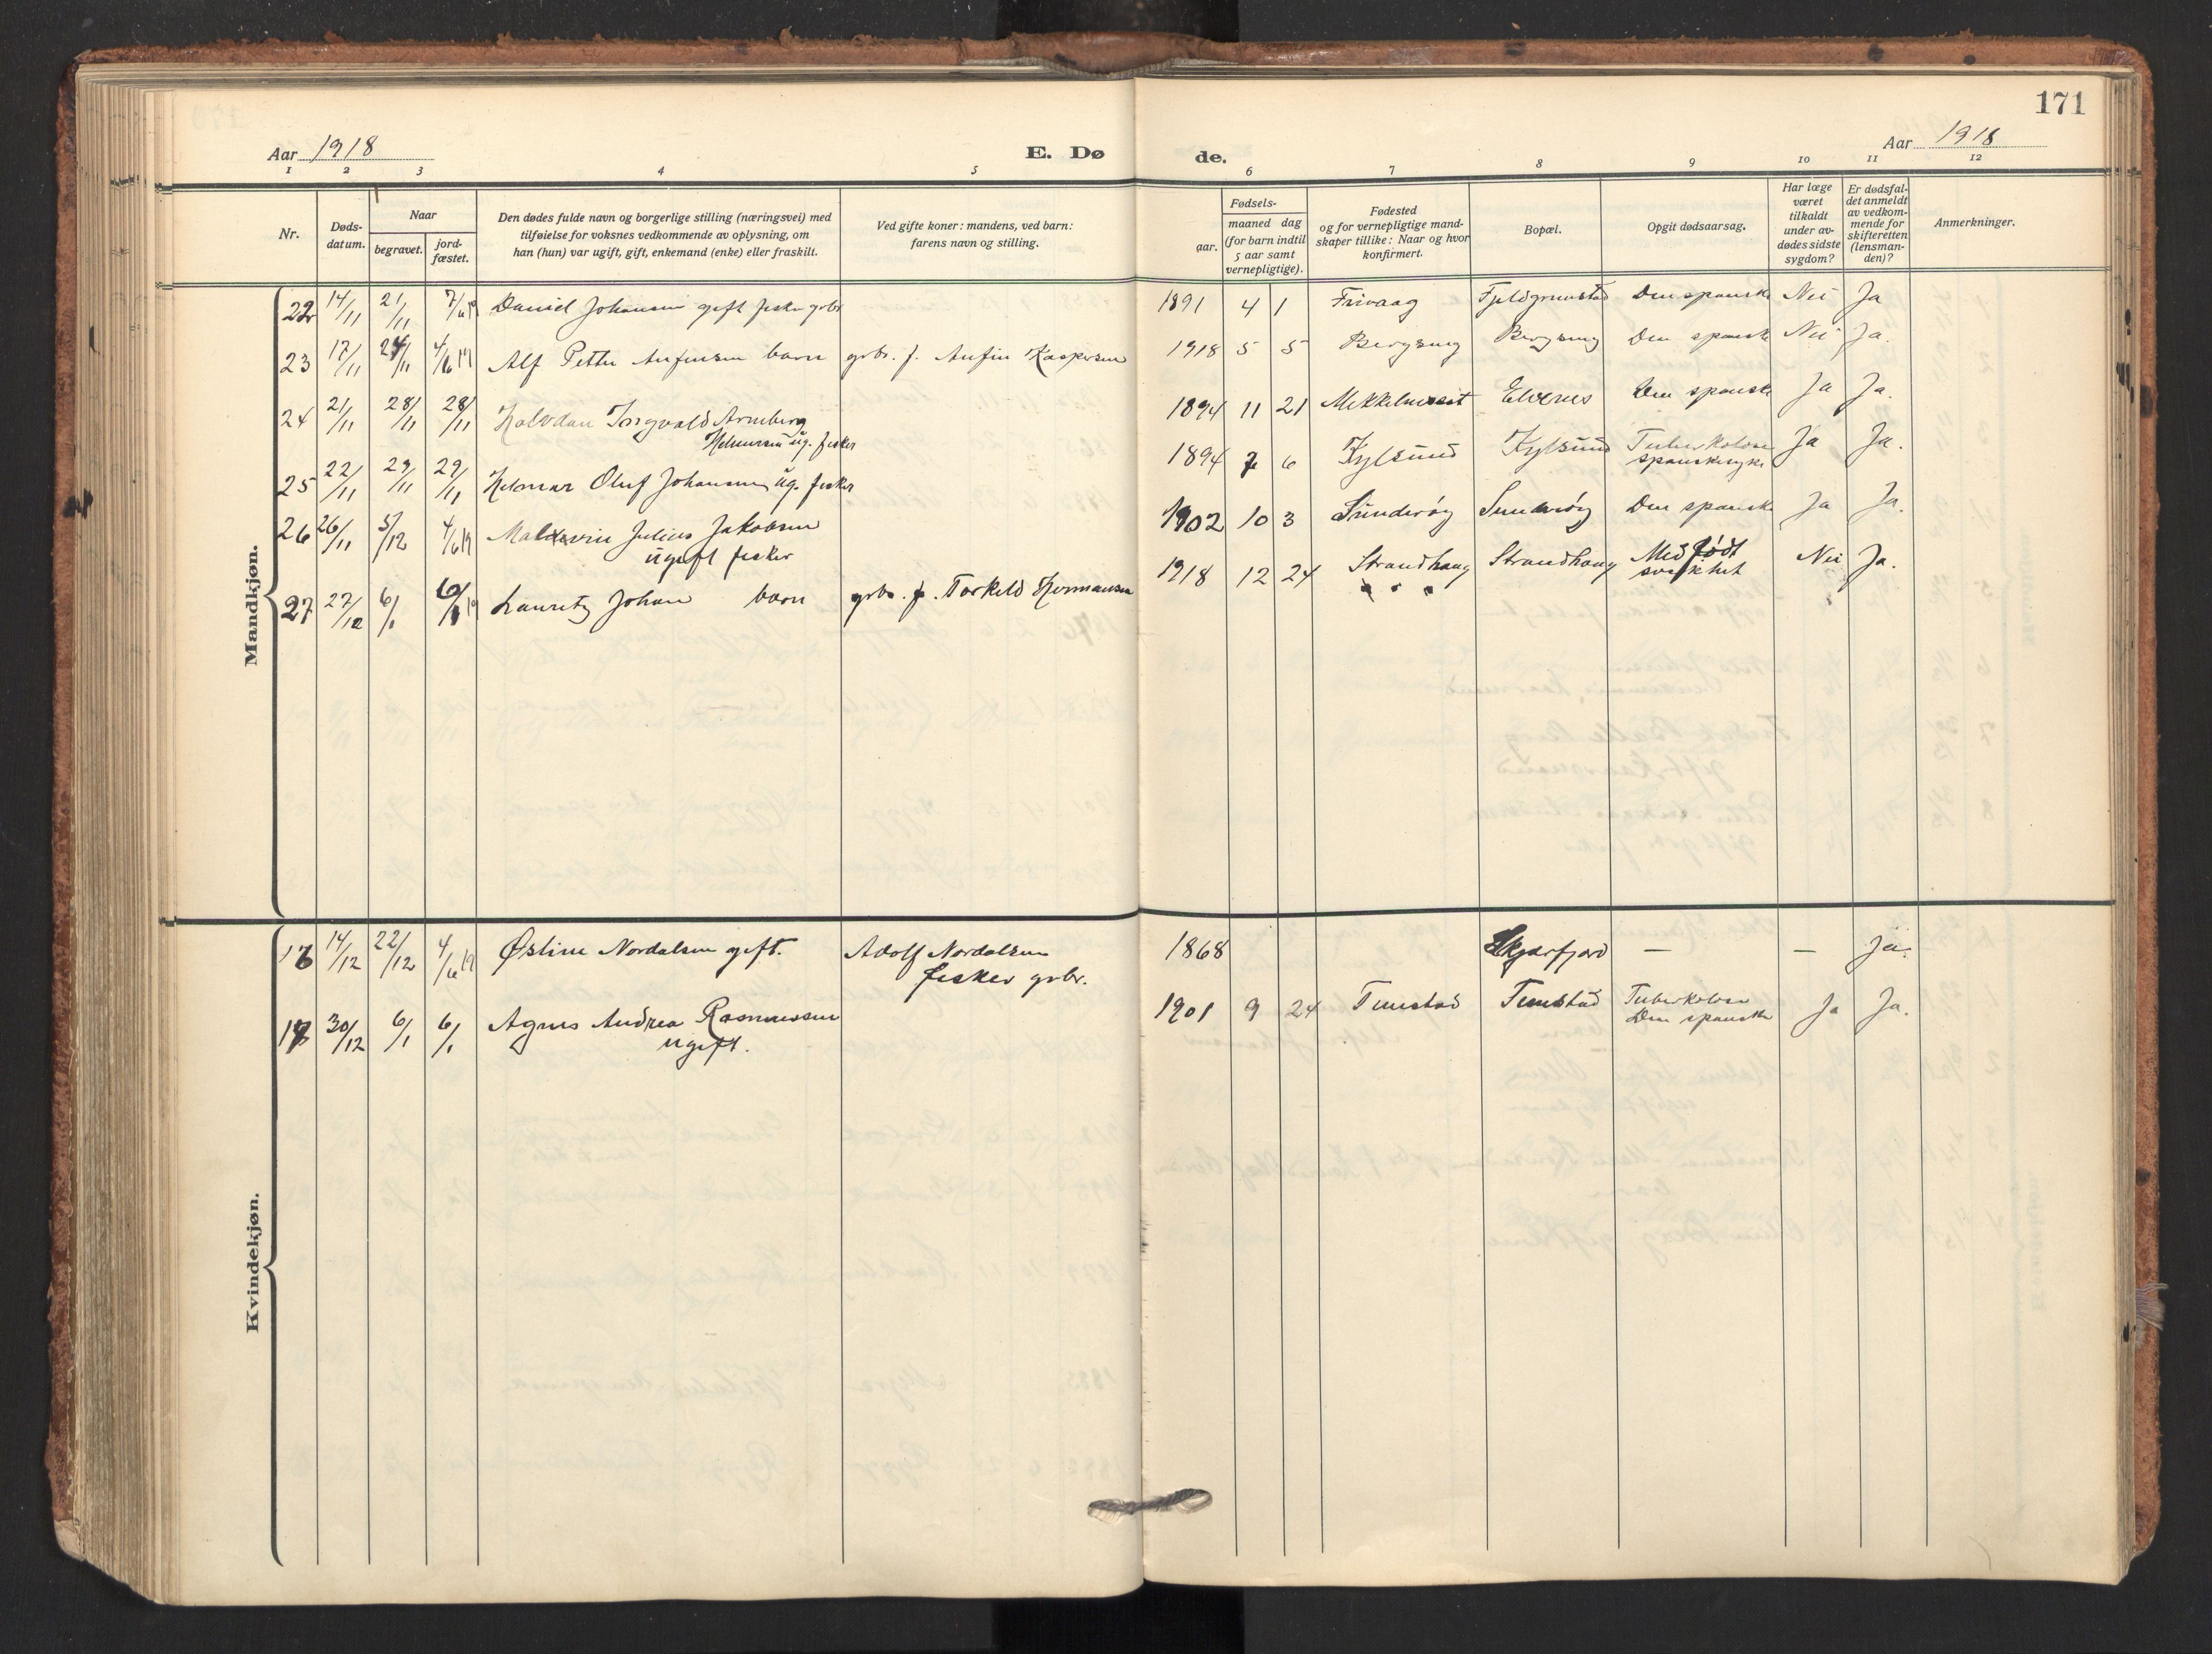 171
Aar 1918
E. Dø
de.
Aar 1918
1 2 3 4 5 6 7 8 9 10 11 12
Nr.
Døds-
datum.
Naar
begravet.
jord-
fæstet.
Den dødes fulde navn og borgerlige stilling (næringsvei) med
tilføielse for voksnes vedkommende av oplysning, om
han (hun) var ugift, gift, enkemand (enke) eller fraskilt.
Ved gifte koner: mandens, ved barn:
farens navn og stilling.
Fødsels-
aar.
maaned dag
(for barn indtil
5 aar samt
vernepligtige).
Fødested
og for vernepligtige mand-
skaper tillike: Naar og hvor
konfirmert.
Bopæl.
Opgit dødsaarsag.
Har læge
været
tilkaldt
under av-
dødes sidste
sygdom?
Er dødsfal-
det anmeldt
av vedkom-
mende for
skifteretten
(lensman-
den)?
Anmerkninger.
Mandkjøn.
22 14/11 21/11 7/6 19 Daniel Johansen gift fisker grbr 1891 4 1 Den spanske Nei Ja
23 17/11 24/11 4/6 19 Alf Petter Anfinsen barn grbr. f. Anfin Kaspersen 1918 5 5 Bergseng Bergseng Den spanske Nei Ja.
24 21/11 28/11 28/11 Halvdan Ingvald Arnberg 1894 11 21 Elvenes Den spanske Ja Ja.
ug. fisker
25 22/11 29/11 29/11 Helmar Oluf Johansen ug. fisker 1894 7 6 Tuberkolose Ja Ja.
spanskesyke
26 26/11 5/12 4/6 19 Julius Jakobsen 1902 10 3 Sunderøy Sunderøy Den spanske Ja Ja.
ugift fisker
27 27/12 6/1 6/1 19 Lauritz Johan barn grbr. f. Torkeld Hermansen 1918 12 24 Strandhaug Strandhaug Medfødt Nei Ja.
svakhet
Kvindekjøn.
16 14/12 22/12 4/6 19 Østine Nordalsen gift. Adolf Nordalsen 1868 Skjærfjord — — Ja.
fisker grbr.
17 30/12 6/1 6/1 Agnes Andrea Rasmussen 1901 9 24 Tunstad Tunstad Tuberkolose Ja Ja.
ugift. Den spanske